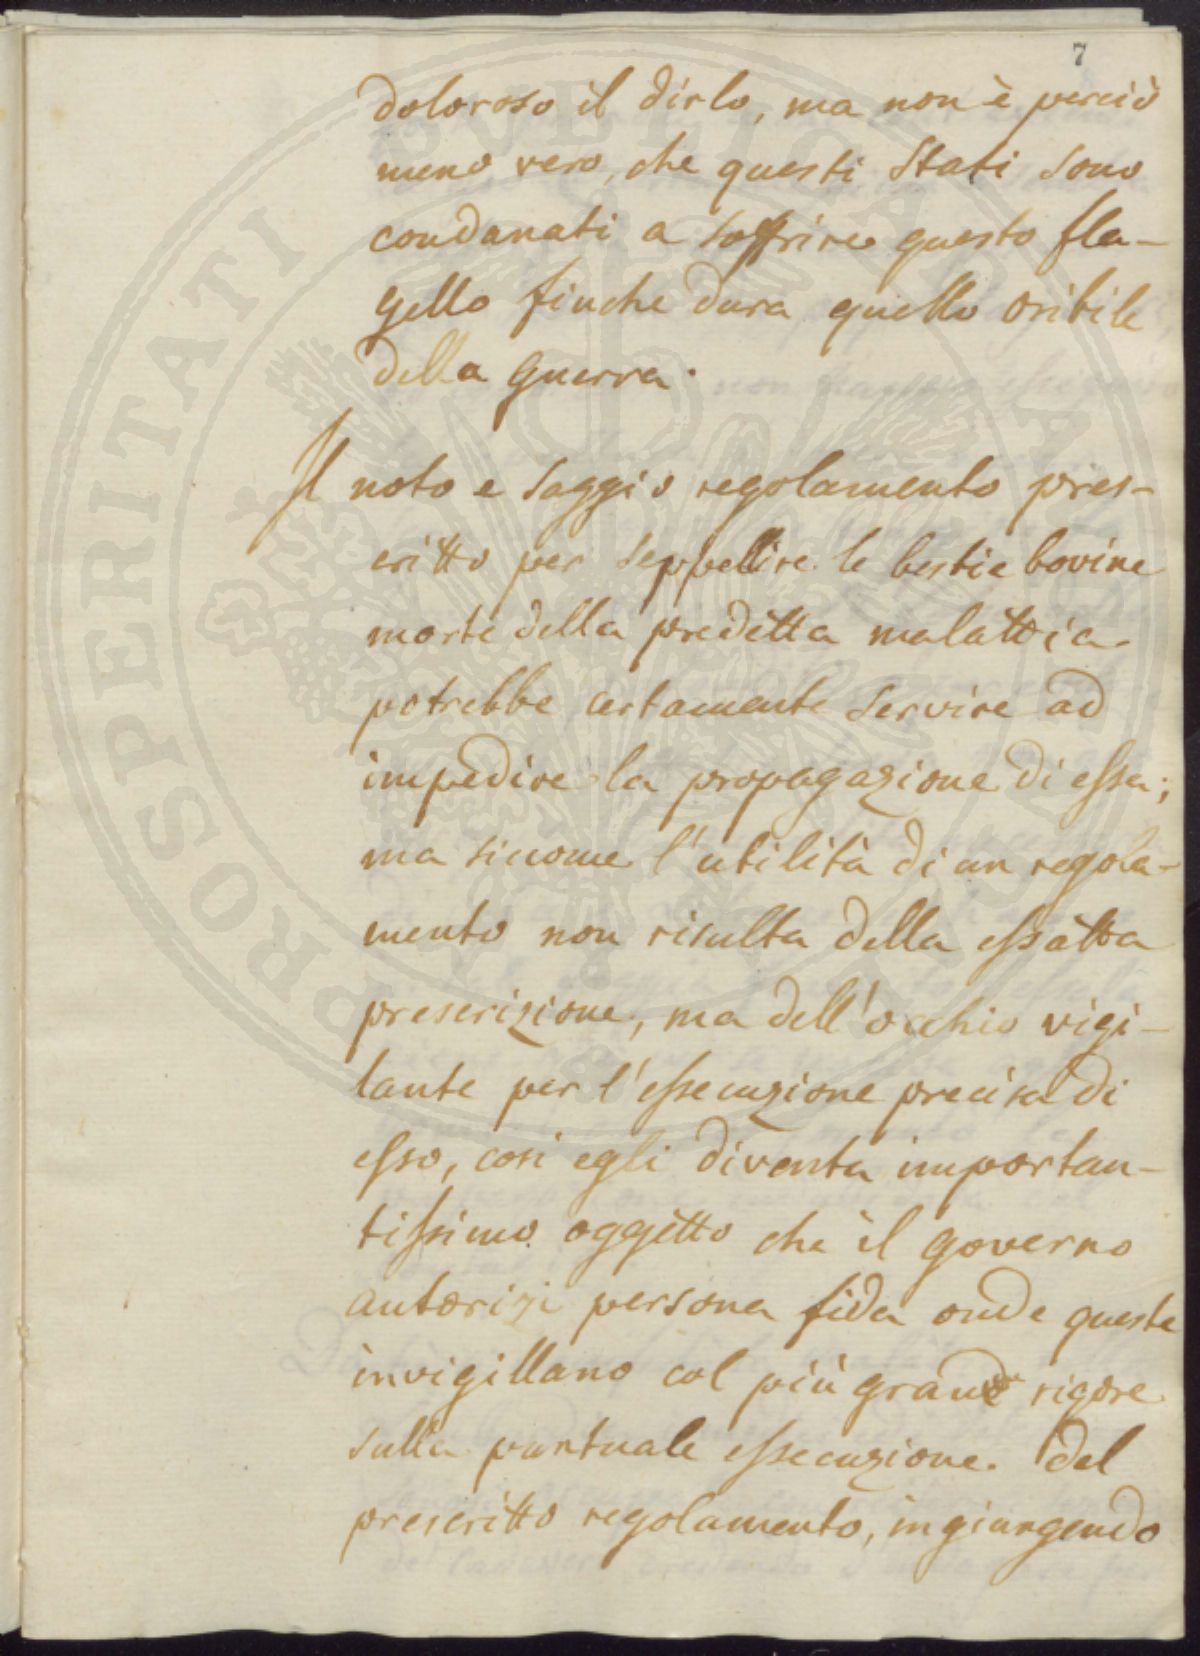 7
doloroso il dirlo, ma non è perciò
meno vero, che questi Stati sono
condanati a soffrire questo fla-
gello finche dura quello oribile
della guerra.
Il noto e saggio regolamento pres-
critto per seppellire le bestie bovine
morte della predetta malattia
potrebbe certamente servire ad
impedire la propagazione di essa;
ma siccome l'utilità di un regola-
mento non risulta della essatta
prescrizione, ma dell'occhio vigi-
lante per l'essecuzione precisa di
esso, cosi egli diventa importan-
tissimo oggetto che il governo
autorizi persona fida onde queste
invigillano col più grande rigore
sulla puntuale essecuzione del
prescritto regolamento, ingiungendo
PROSPERITATI PUBLICAE